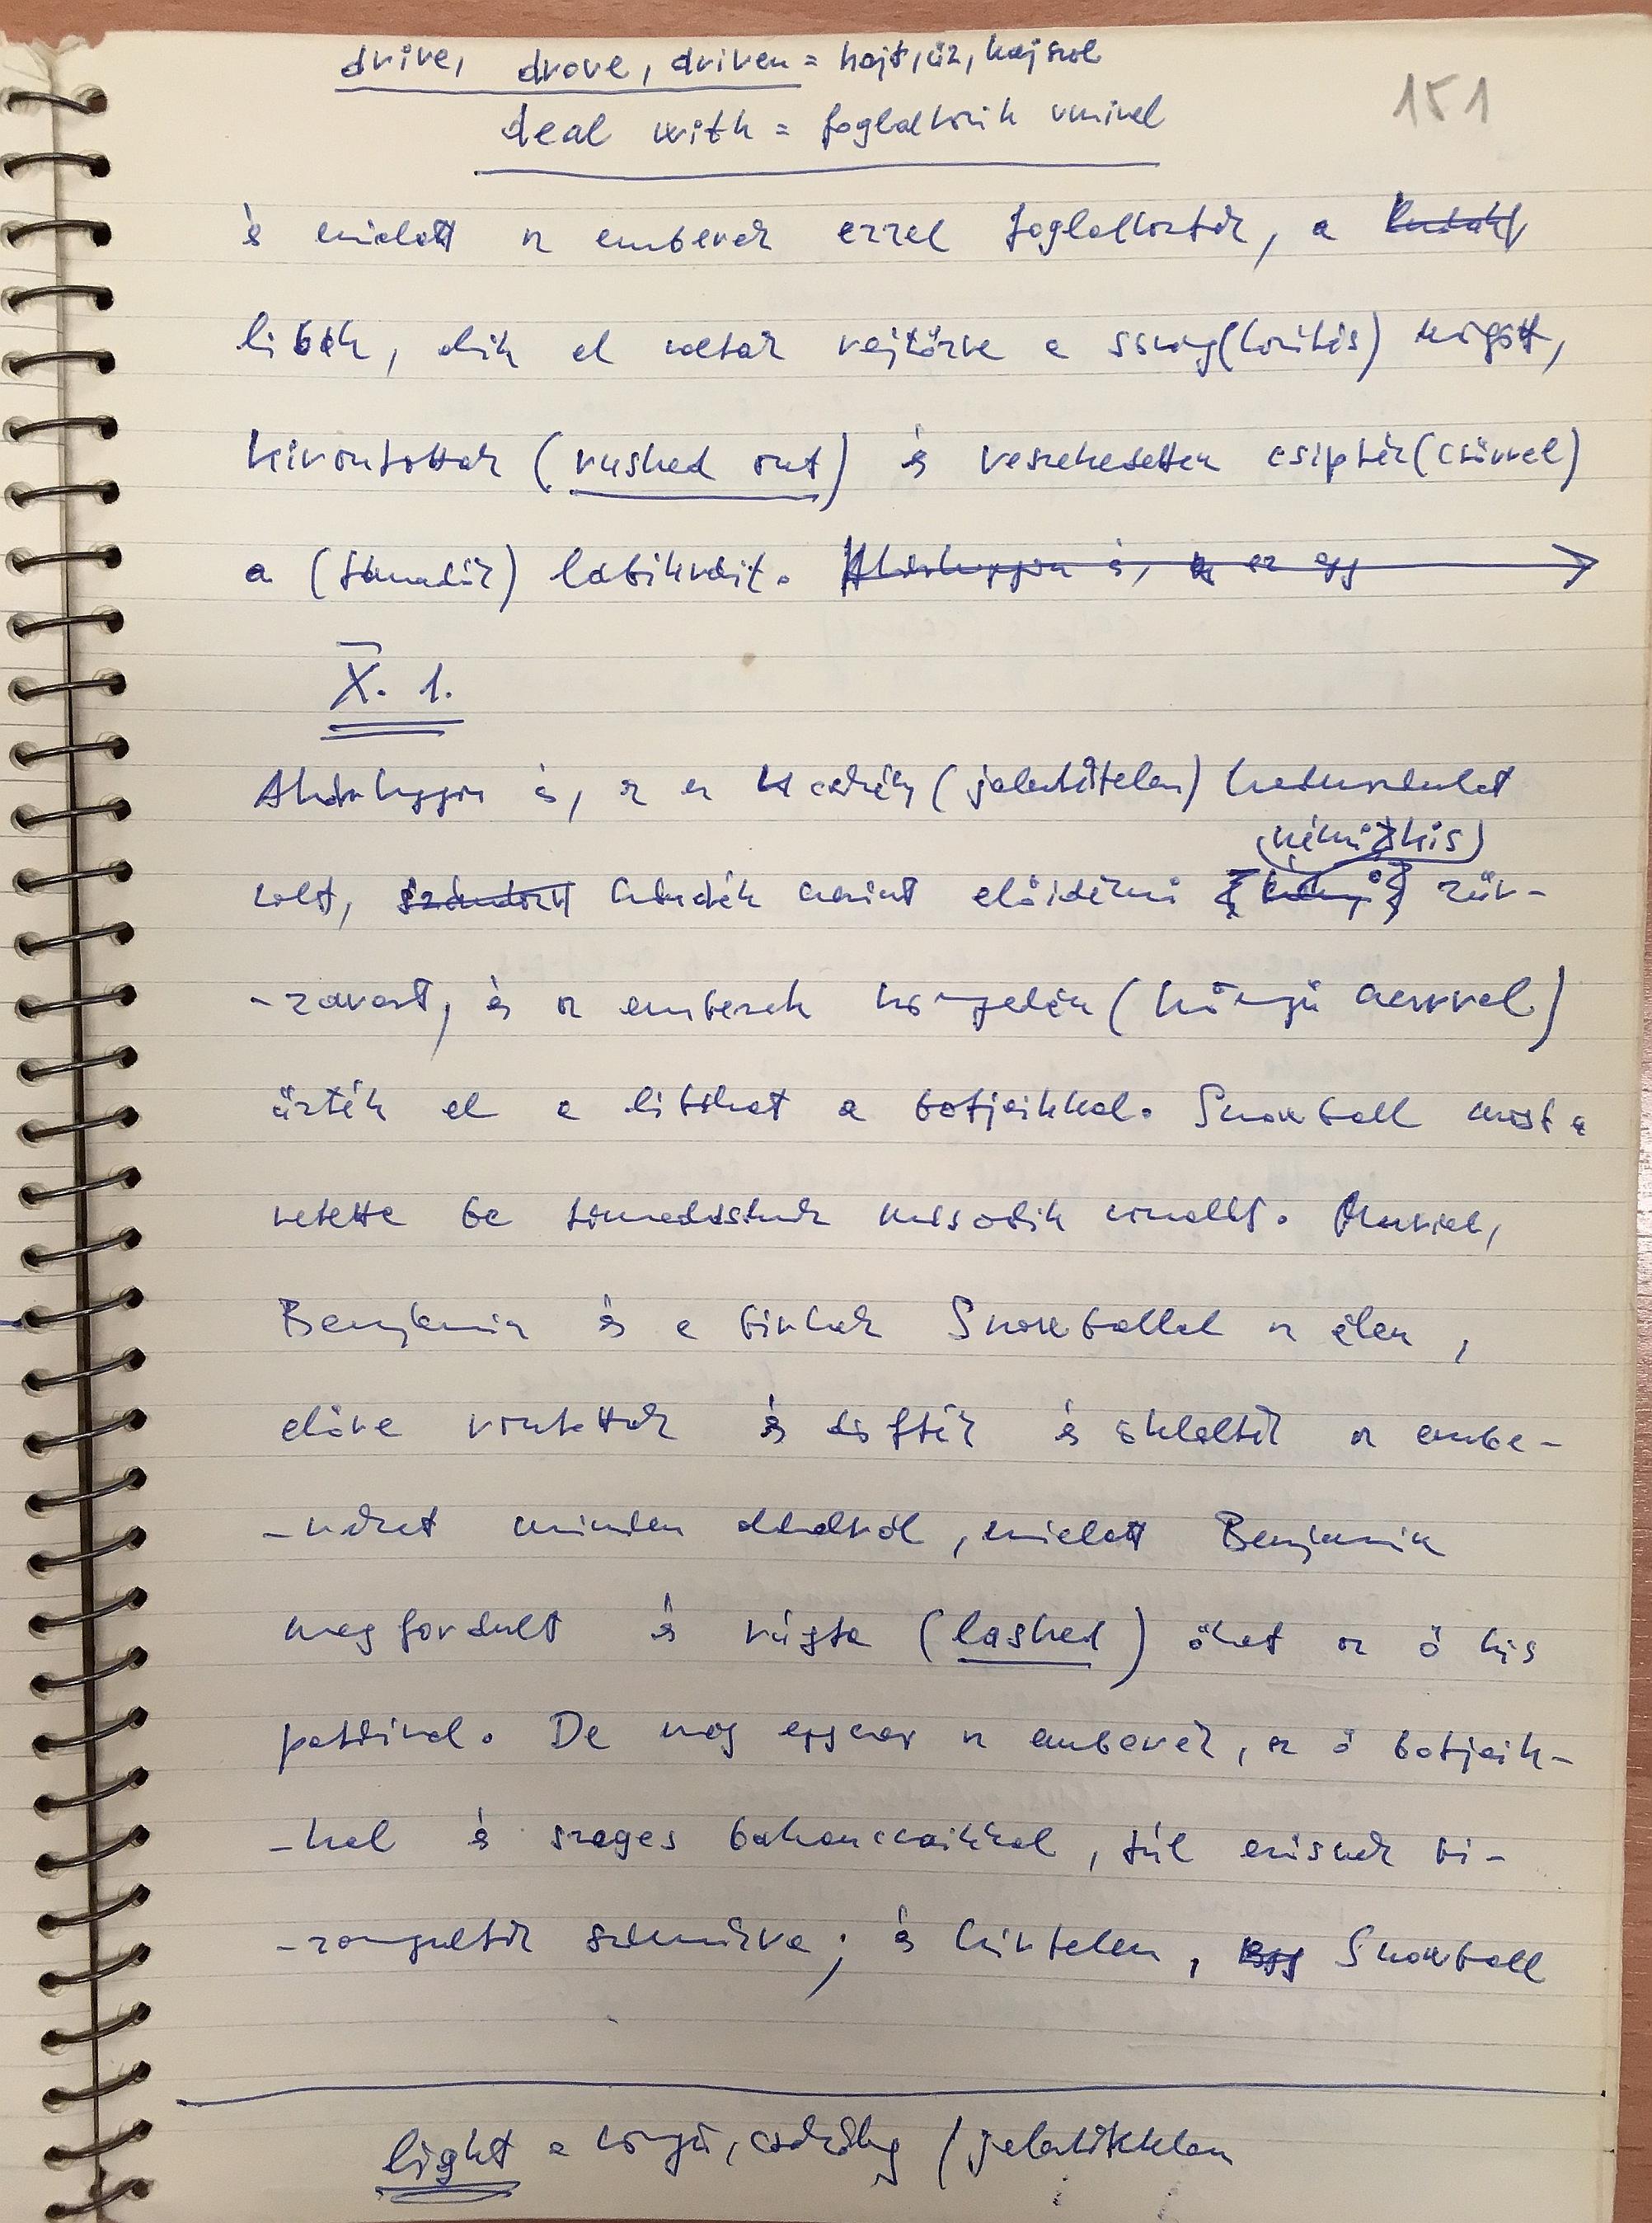 drive, drove, driven = hajt, űz, hajszol
151
deal with = foglalkozik vmivel
és mialatt az emberek ezzel foglalkoztak, a
libák, akik el voltak rejtőzve a sövény(kerítés) mögött,
kirontottak (rushed out) és veszekedetten csipték (csőrrel)
a (támadók) lábikráit. Akárhogyan is, ez egy
X. 1.
Akárhogyan is, ez a csekély (jelentéktelen) hadmozdulat
(némi kis)
volt, szándék szerint előidézni zűr-
-zavart, és az emberek könnyedén (könnyű szerrel)
űzték el a libákat a botjaikkal. Snowball most a
vetette be támadásának második vonalát. Muriel,
Benjamin és a birkák Snowballal az élen,
előre rontottak és döfték és öklelték az embe-
-reket minden oldalról, mialatt Benjamin
megfordult és rúgta (lashed) őket az ő kis
patáival. De még egyszer az emberek, az ő botjaik-
-kal és szeges bakancsaikkal, túl erősnek bi-
-zonyultak számukra; és hirtelen, Snowball
light = könnyű, csekély / jelentéktelen